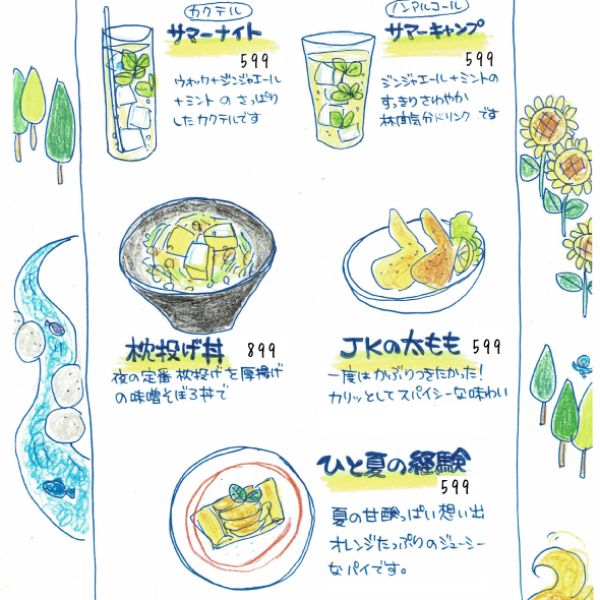 カクテル
サマーナイト
599
ウォッカ+ジンジャエール
+ミントの さっぱり
したカクテルです
ノンアルコール
サマーキャンプ
599
ジンジャエール+ミントの
すっきりさわやか
林間気分ドリンク です
枕投げ丼 899
夜の定番 枕投げを厚揚げ
の味噌そぼろ丼で
JKの太もも 599
一度はかぶりつきたかった!
カリッとしてスパイシーな味わい
ひと夏の経験
599
夏の甘酸っぱい想い出
オレンジたっぷりのジューシー
なパイです。